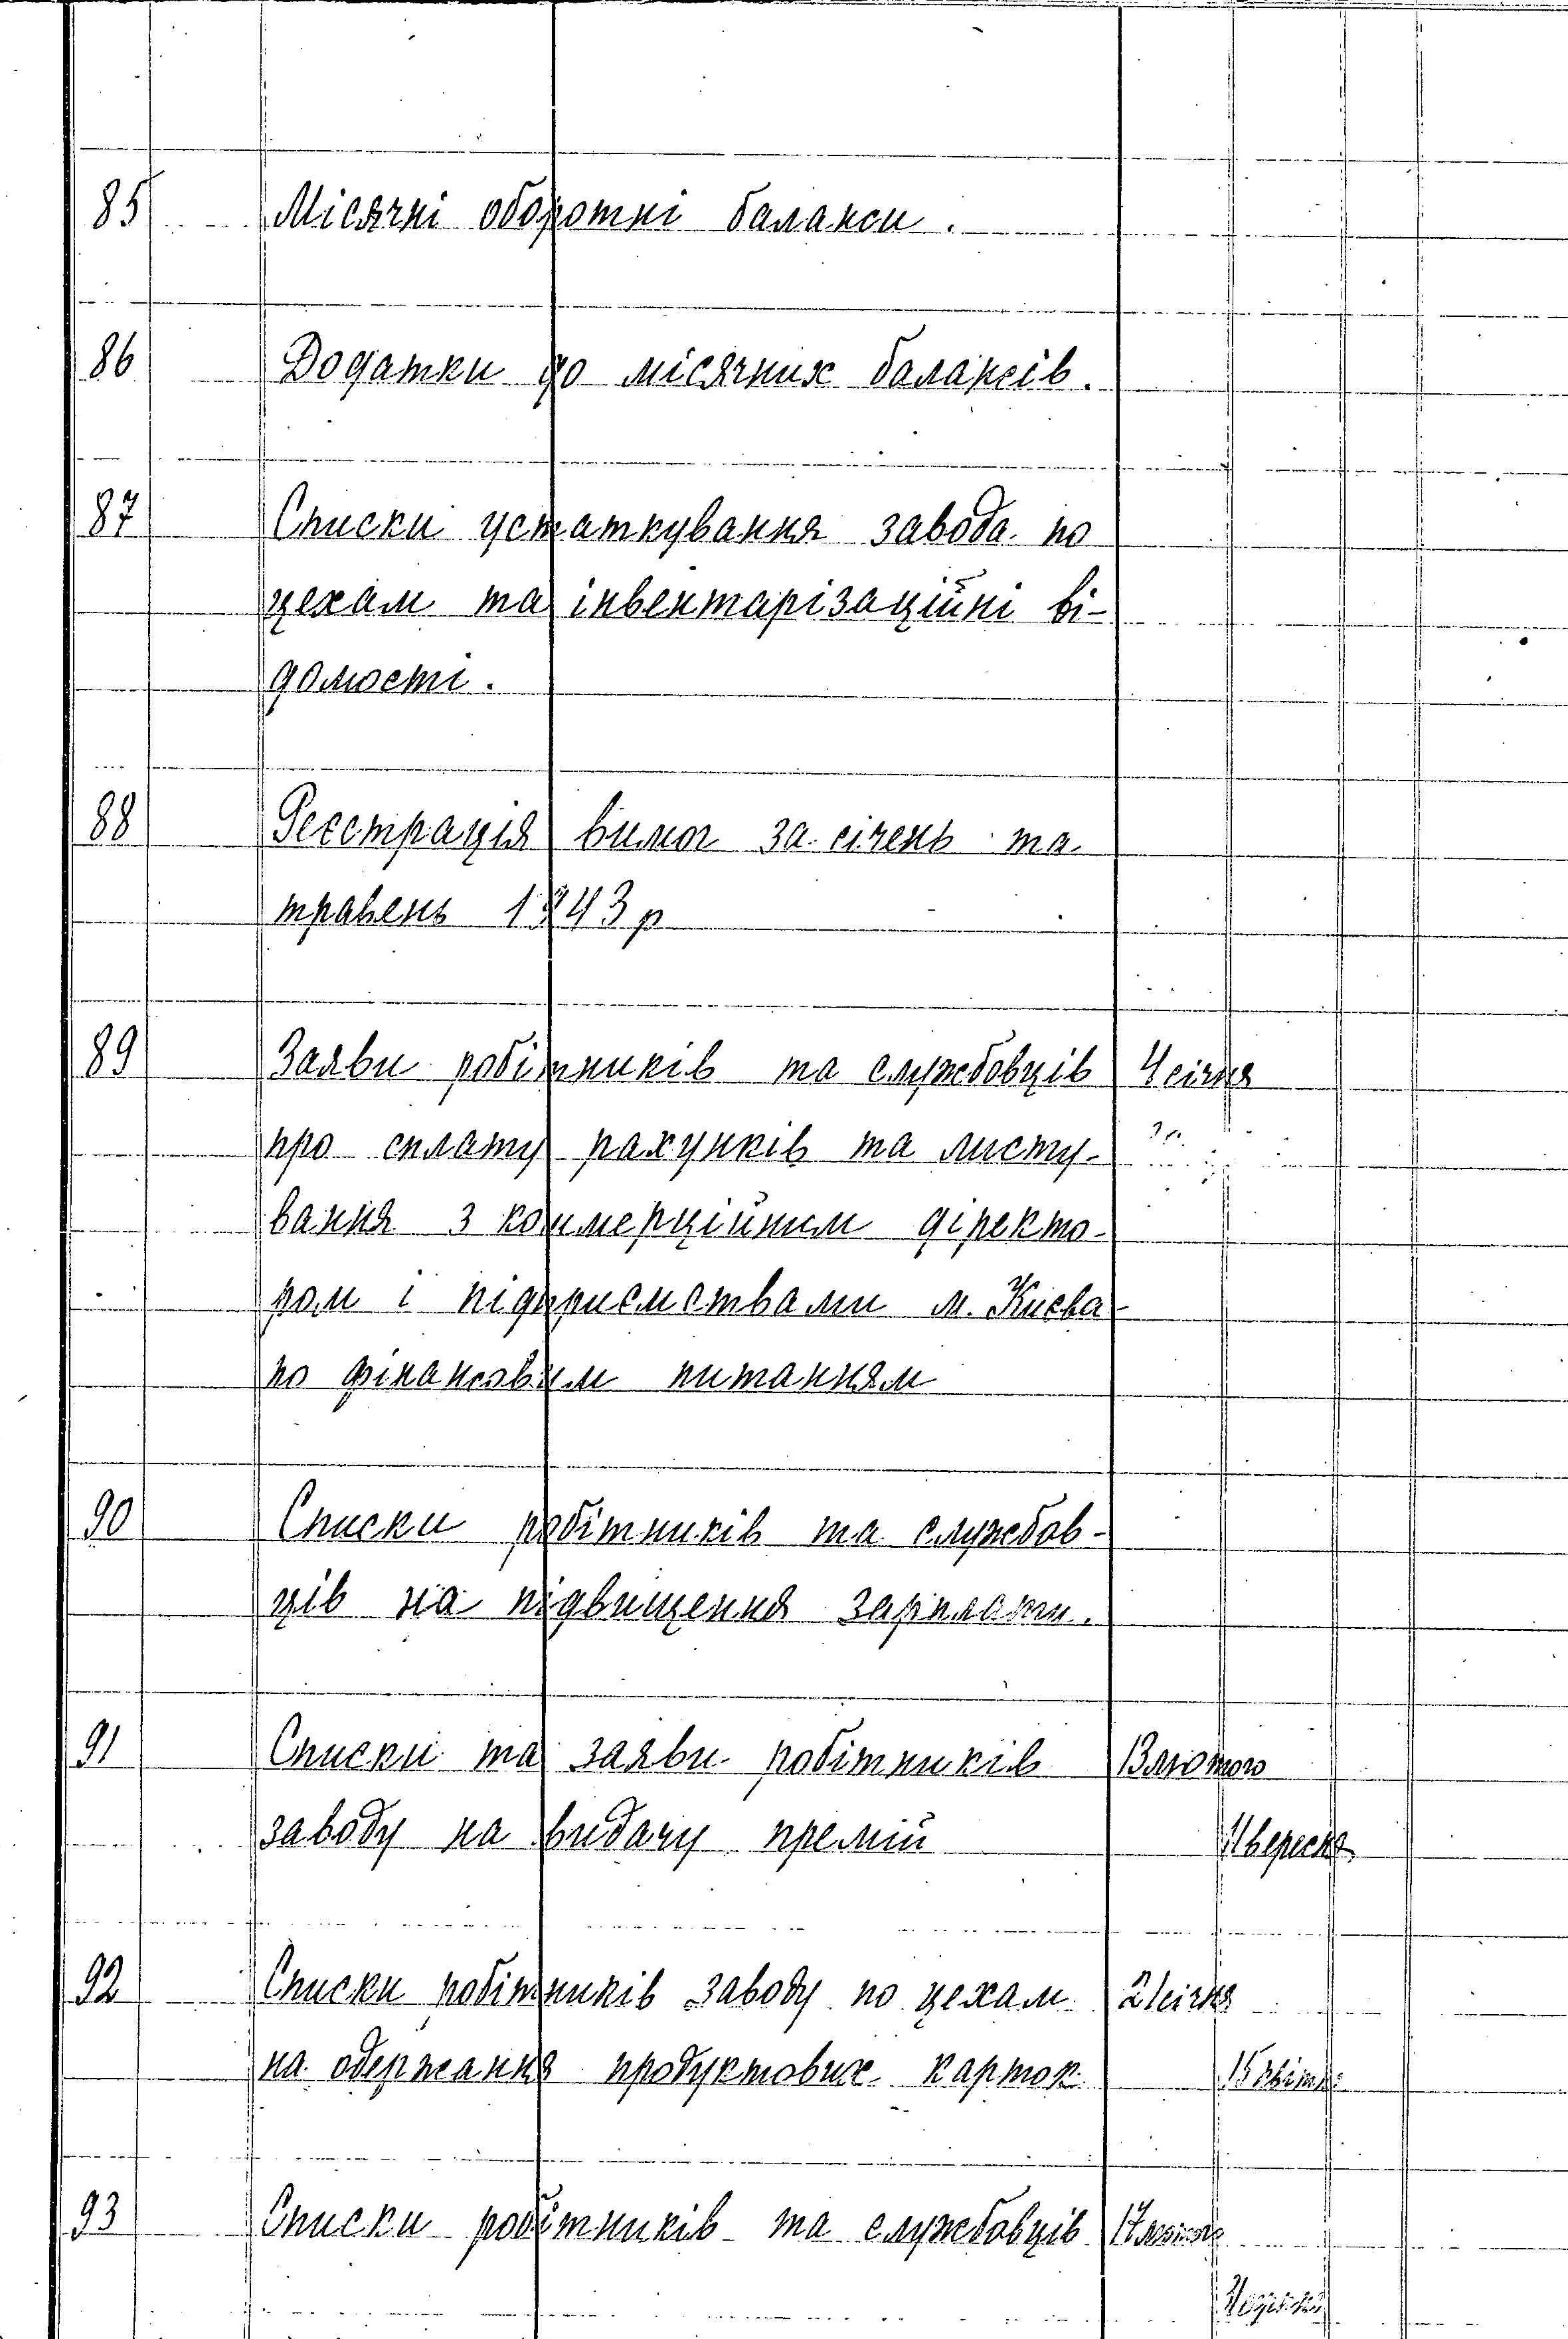 85 Місячні оборотні баланси.
86 Додатки до місячних балансів.
87 Списки устаткування завода по
цехам та інвентарізаційні ві-
домості.
88 Реєстрація вимог за січень та
травень 1943 р
89 Заяви робітників та службовців 4 січня
про сплату рахунків та листу-
вання з коммерційним діректо-
ром і підприємствами м. Києва
по фінансовим питанням
90 Списки робітників та службов-
ців на підвищення зарплати.
91 Списки та заяви робітників 13 лютого
заводу на видачу премій вересня
92 Списки робітників заводу по цехам 21 січня
на одержання продуктових карток 15 квітня
93 Списки робітників та службовців 17 лютого